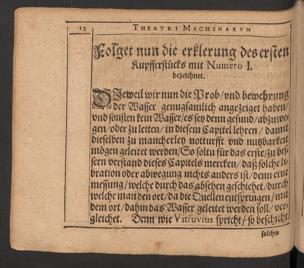 12 THEATRI MACHINARVM
Folget nun die erklerung des ersten
Kupfferstücks mit Numero I.
bezeichnet.
DJeweil wir nun die Prob/vnd bewehrung
der Wasser genugsamlich angezeiget haben/
vnd sonsten kein Wasser/es sey denn gesund/abzuwe-
gen/oder zu leiten/in diesem Capitel lehren/damit
dieselben zu mancherley notturfft vnd nutzbarkeit
mögen geleitet werden/So soltu für das erste/zu bes-
sern verstand dieses Capitels mercken/daß solche li-
bration oder abwegung nichts anders ist/denn eine
messung/welche durch das absehen geschiehet/durch
welche man den ort/da die Quellen entspringen/mit
dem ort/dahin das Wasser geleitet werden soll/ver-
gleichet. Denn wie Vitruvius spricht/so beschicht
solches